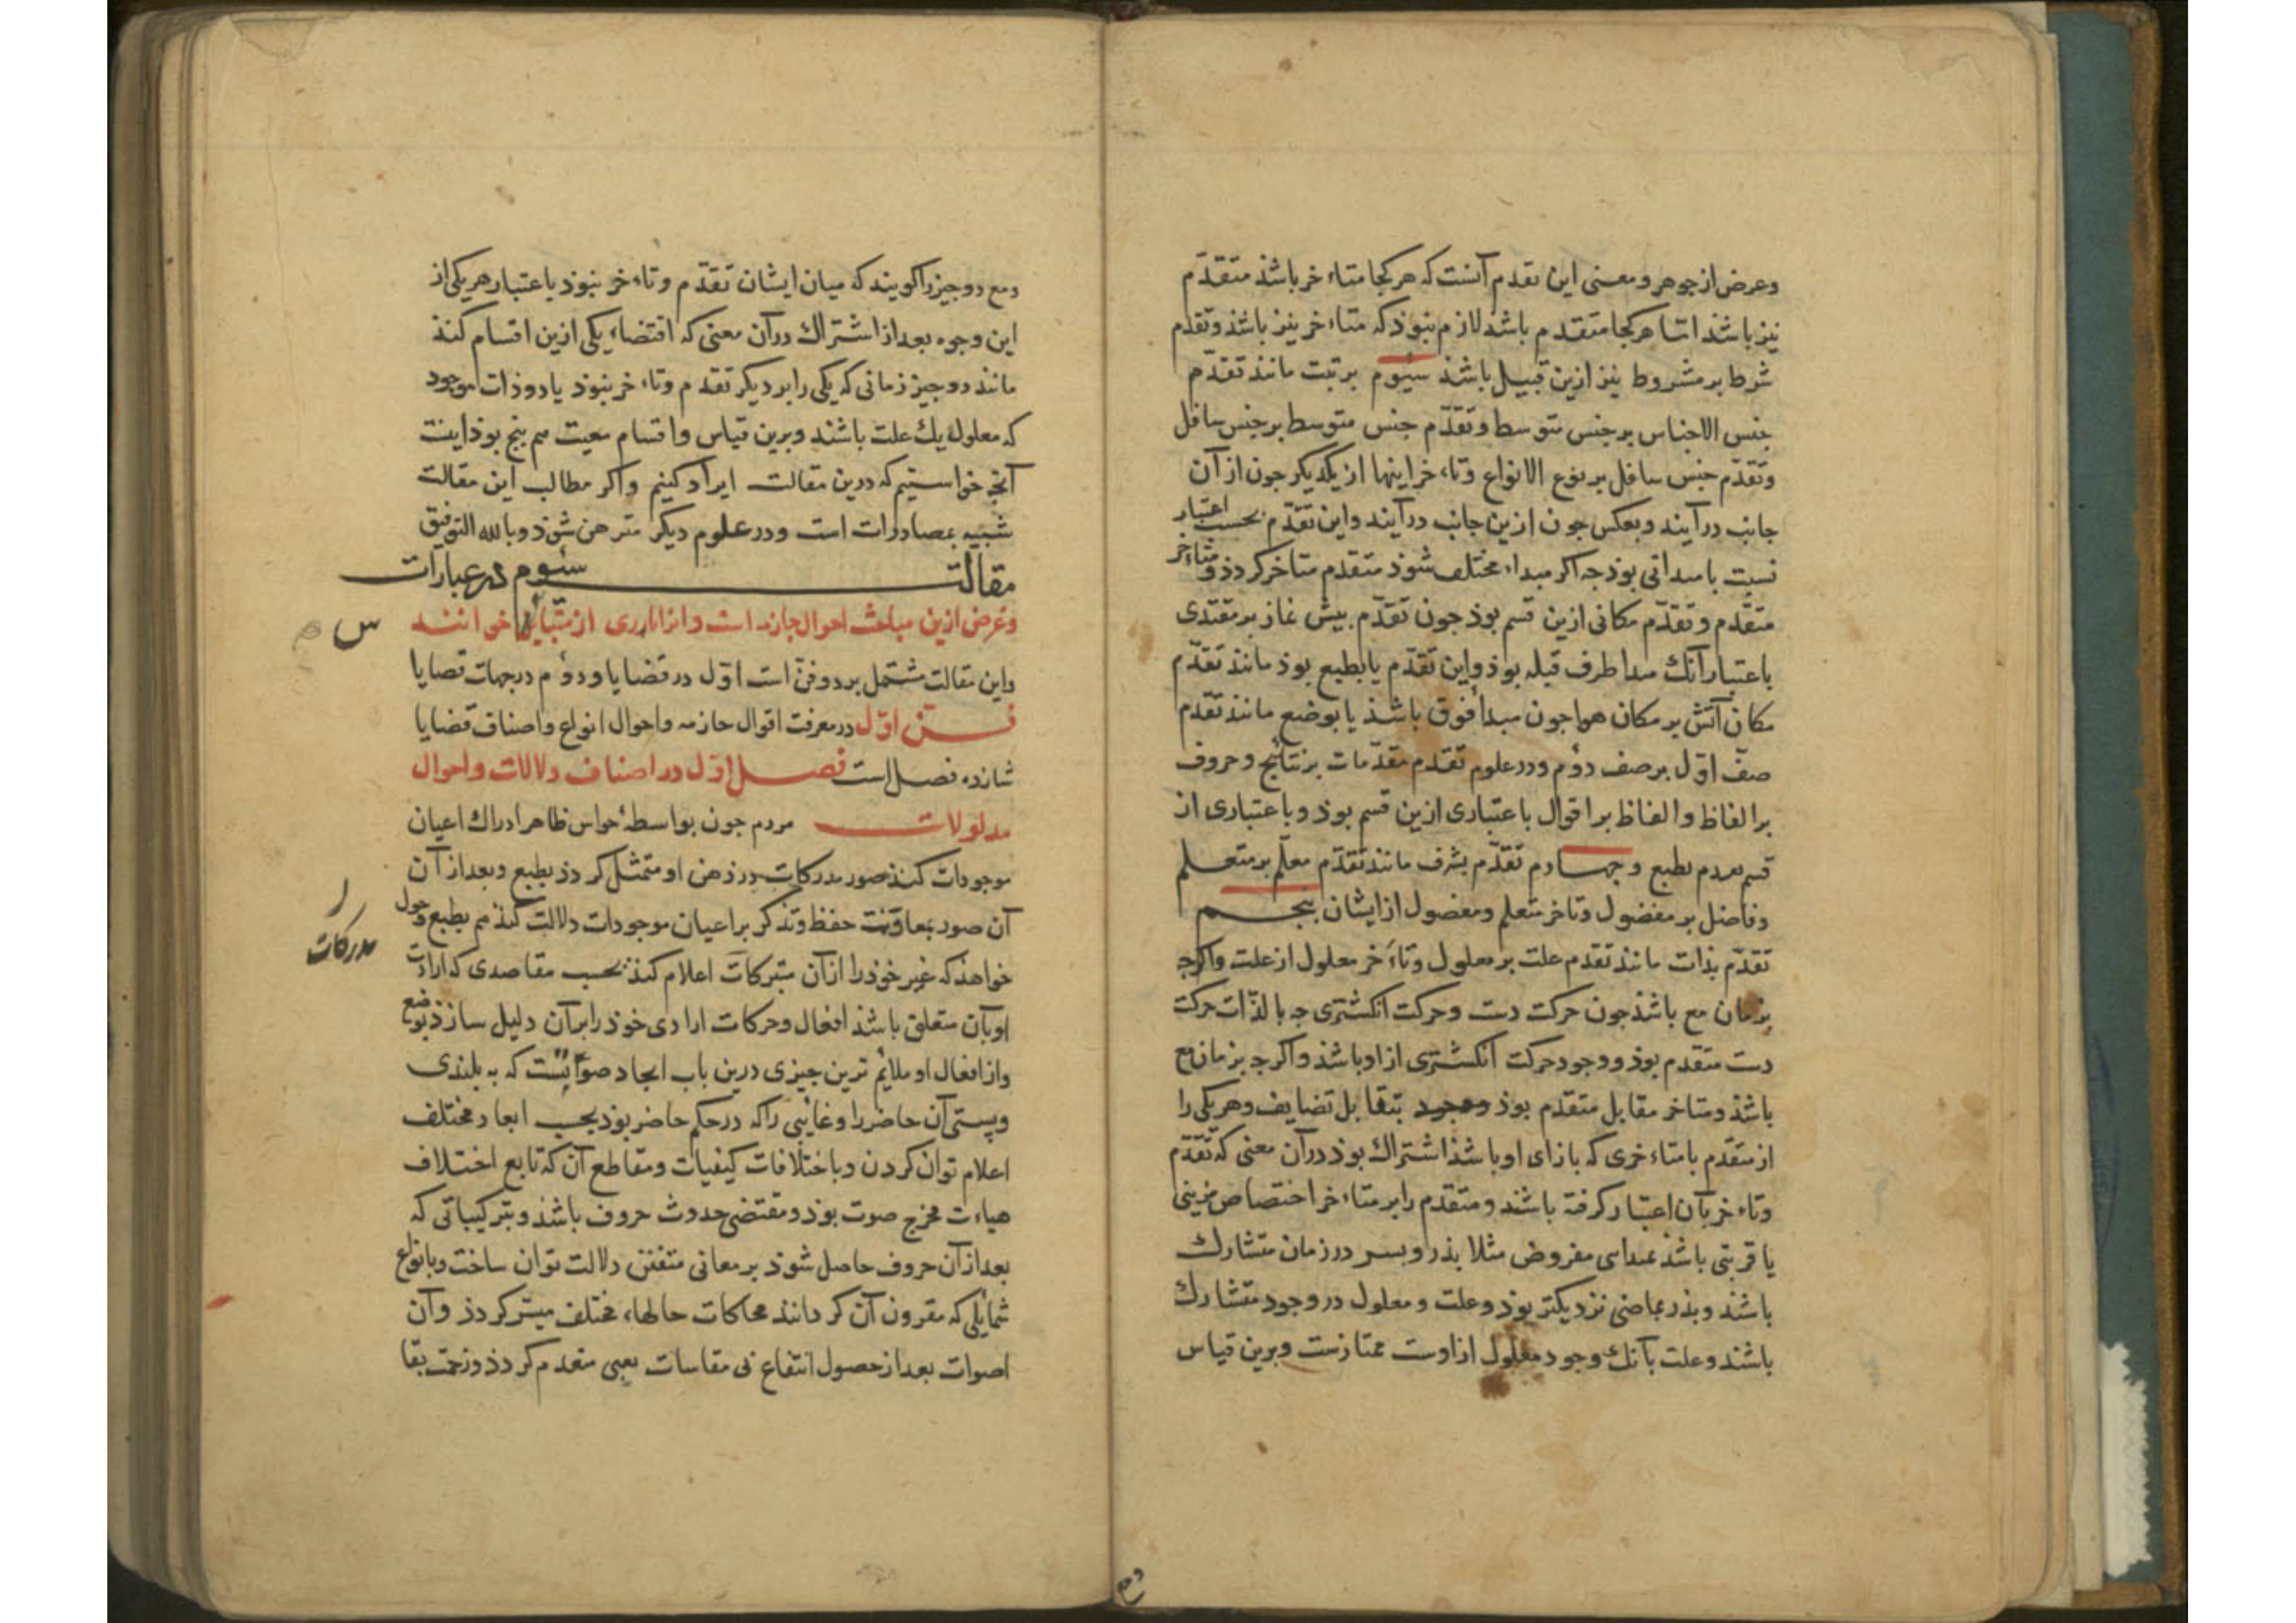 وعرض از جوهر و معنی این تقدم آنست که هر کجا متاءخر باشذ متقدّم
نیز باشذ اما هر کجا متقدم باشد لازم نبوذ که متاءخر نیز باشذ و تقدم
شرط بر مشروط نیز ازین قبیل باشذ سیُوم برتبت مانند تقدّم
جنس الاجناس بر جنس متوسط و تقدّم جنس متوسط بر جنس سافل
و تقدّم جنس سافل بر نوع الانواع و تاءخر اینها از یکدیکر جون از آن
جانب در آیند و بعکس جون ازین جانب در آیند و این تقدّم بحسب اعتبار
نسبت با مبدائی بوذ جه اکر مبداء مختلف شوذ متقدم متاخر کردذ و متاءخر
متقدّم و تقدّم مکانی ازین قسم بوذ جون تقدّم بیش نماز بر مقتدی
باعتبار آنک مبدا طرف قبله بوذ و این تقدّم یا بطبع بوذ مانند تقدّم
مکان آتش بر مکان هوا جون مبدأ فوق باشذ یا بوضع مانند تقدّم
صف اوّل بر صف دوُم و در علوم تقدم مقدّمات بر نتائج و حروف
بر الفاظ و الفاظ بر اقوال باعتباری ازین قسم بوذ و باعتباری از
قسم تقدم بطبع و جهارم تقدّم بشرف مانند تقدّم معلّم بر متعلم
و فاضل بر مفضول و تاخر متعلم و مفضول از ایشان بنجم
تقدّم بذات مانند تقدم علت بر معلول و تاءخر معلول از علت و اکرجه
بزمان مع باشذ جون حرکت دست و حرکت انکشتری جه بالذّات حرکت
دست متقدم بوذ و وجود حرکت انکشتری از او باشذ و اکرجه بزمان مع
باشذ و متاخر مقابل متقدم بوذ وجود بتقابل تضایف و هر یکی را
از متقدّم با متاءخری که بازای او باشذ اشتراک بوذ در آن معنی که تقدّم
و تاءخر بآن اعتبار کرفته باشند و متقدم را بر متاءخر اختصاص مزیتی
یا قربتی باشذ بمبدای مفروض مثلا بذر و بسر در زمان متشارک
باشند و بذر بماضی نزدیکتر بوذ و علت و معلول در وجود متشارک
باشند و علت بآنک وجود معلول از اوست ممتازست و برین قیاس
ومع
ومع دو جیز را کویند که میان ایشان تقدّم و تاءخر نبوذ باعتبار هر یکی از
این وجوه بعد از اشتراک در آن معنی که اقتضاء یکی ازین اقسام کند
مانند دو جیز زمانی که یکی را بر دیکر تقدم و تاءخر نبوذ یا دو ذات موجود
که معلول یک علت باشند و برین قیاس و اقسام معیت هم بنج بوذ اینست
آنجه خواستیم که درین مقالت ایراد کنیم و اکر مطالب این مقالت
شبیه بمصادرات است و در علوم دیکر مبرهن شوذ و بالله التوفیق
مقالت سئوم در عبارات
و غرض ازین مباحث احوال جازمه است و انرا باری ارمینیاس خوانند
س
و این مقالت مشتمل بر دو فنّ است اوّل در قضایا و دوُم در جهات قضایا
فن اوّل در معرفت اقوال جازمه و احوال انواع و اصناف قضایا
شانزده فصل است فصل اوّل در اصناف دلالات و احوال
مدلولات مردم جون بواسطهٔ حواس ظاهر ادراک اعیان
موجودات کند صور مدرکات در ذهن او متمثل کردذ بطبع و بعد از آن
آن صور بمعاونت حفظ و تذکر بر اعیان موجودات دلالت کند هم بطبع و جون
مدرکات
خواهذ که غیر خوذ را از آن متبرکات اعلام کند بحسب مقاصدی که ارادت
او بآن متعلق باشذ افعال و حرکات ارادی خوذ را بر آن دلیل سازذ بوضع
و از افعال او ملائم ترین جیزی درین باب ایجاد صوتست که به بلندی
و پستی آن حاضر را و غائبی را که در حکم حاضر بوذ بحسب ابعاد مختلف
اعلام توان کردن و باختلافات کیفیات و مقاطع آن که تابع اختلاف
هیاءت مخرج صوت بوذ و مقتضی حدوث حروف باشذ و بترکیباتی که
بعد از آن حروف حاصل شوذ بر معانی متفنن دلالت توان ساخت و بانواع
شمایلی که مقرون آن کردانند محاکات حالهاء مختلف میسّر کردذ و آن
اصوات بعد از حصول انتفاع بی مقاسات تعبی منعدم کردذ و زحمت بقا